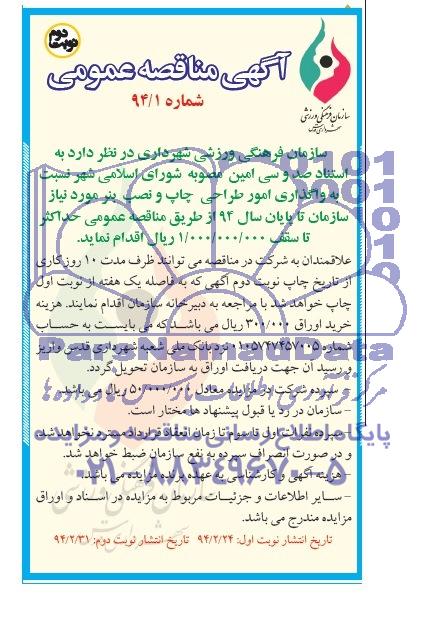 نوبت دوم
آگهی مناقصه عمومی
شماره ۹۴/۱
سازمان فرهنگی ورزشی
سازمان فرهنگی ورزشی شهرداری در نظر دارد به
استناد صد و سی امین مصوبه شورای اسلامی شهر نسبت
به واگذاری امور طراحی چاپ و نصب بنر مورد نیاز
سازمان تا پایان سال ۹۴ از طریق مناقصه عمومی حداکثر
تا سقف ۱/۰۰۰/۰۰۰/۰۰۰ ریال اقدام نماید.
علاقمندان به شرکت در مناقصه می توانند ظرف مدت ۱۰ روزکاری
از تاریخ چاپ نوبت دوم آگهی که به فاصله یک هفته از نوبت اول
چاپ خواهد شد با مراجعه به دبیرخانه سازمان اقدام نمایند. هزینه
خرید اوراق ۳۰۰/۰۰۰ ریال می باشد که می بایست به حساب
شماره ۰۱۰۵۷۴۷۴۵۷۰۰۵ نزد بانک ملی شعبه شهرداری قدس واریز
و رسید آن جهت دریافت اوراق به سازمان تحویل گردد.
- سپرده شرکت در مزایده معادل ۵۰/۰۰۰/۰۰۰ ریال می باشد.
- سازمان در رد یا قبول پیشنهاد ها مختار است.
- سپرده نفرات اول تا سوم تا زمان انعقاد قرارداد مسترد نخواهد شد
و در صورت انصراف سپرده به نفع سازمان ضبط خواهد شد.
- هزینه آگهی و کارشناسی به عهده برنده مزایده می باشد.
- سایر اطلاعات و جزئیات مربوط به مزایده در اسناد و اوراق
مزایده مندرج می باشد.
تاریخ انتشار نوبت اول: ۹۴/۲/۲۴ تاریخ انتشار نوبت دوم: ۹۴/۲/۳۱
ParsNamadData
پایگاه اطلاع رسانی مناقصه و مزایده
۰۲۱-۸۸۳۴۹۶۷۰-۵